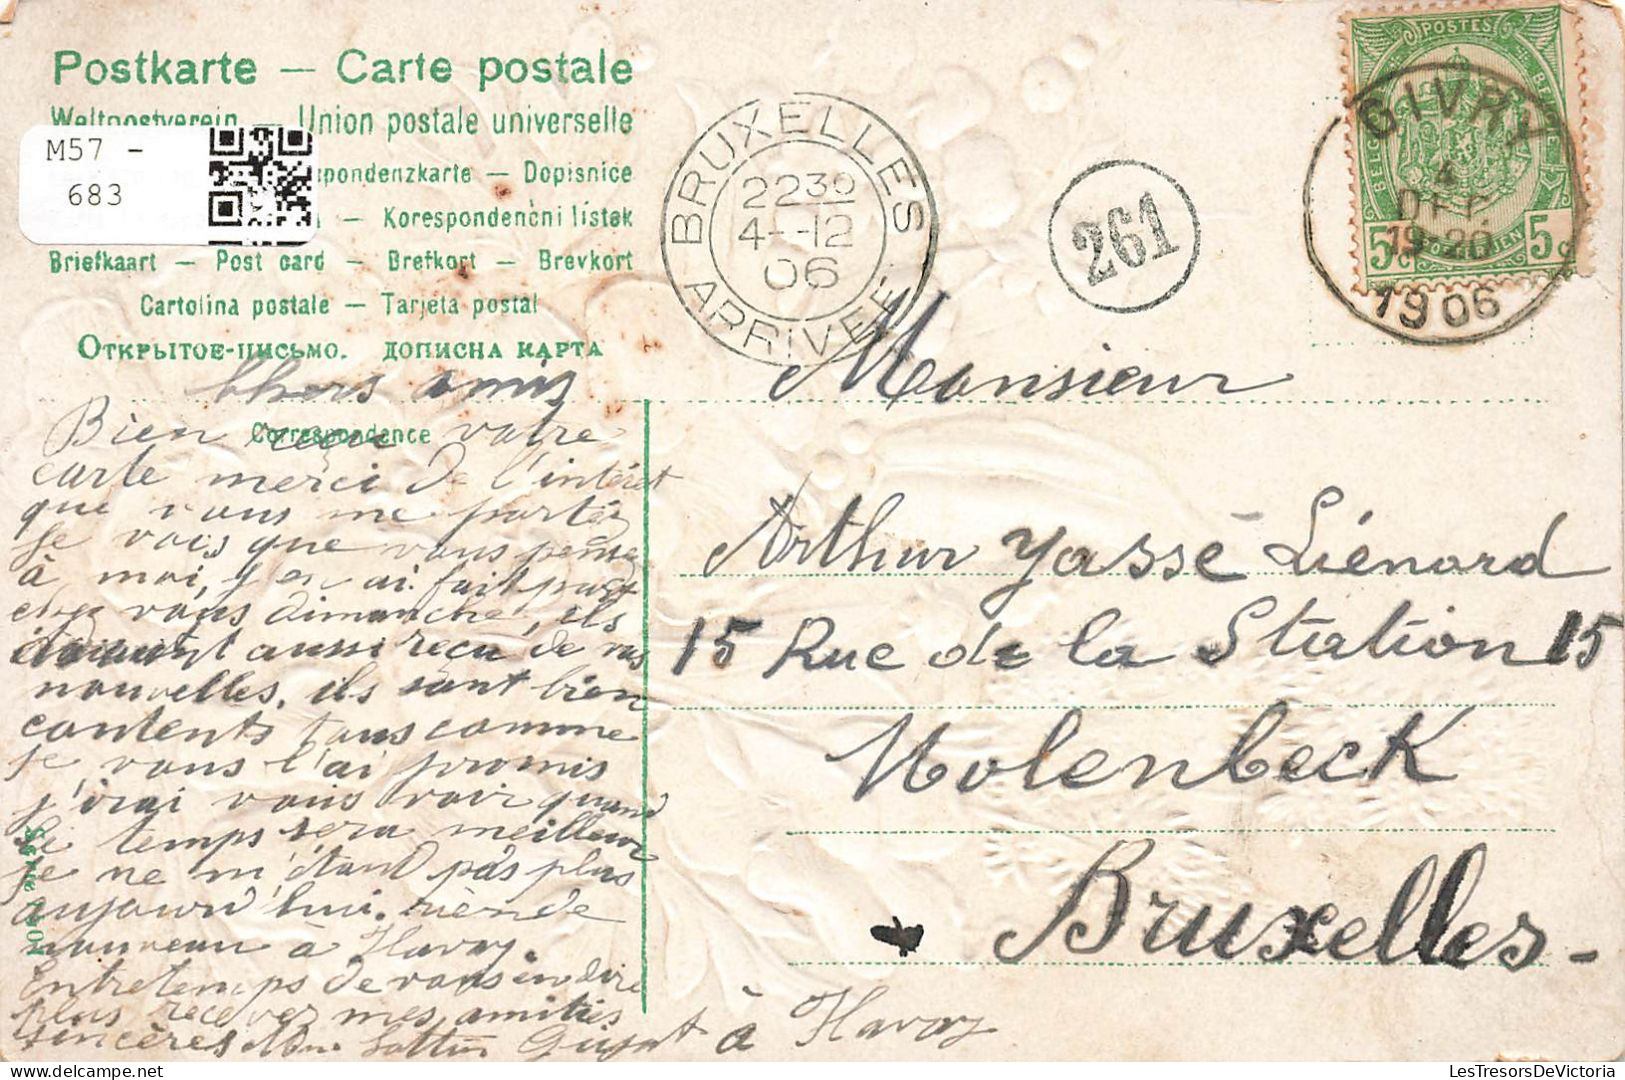 Postkarte — Carte postale
Weltpostverein — Union postale universelle
M57 -
683
spondenzkarte — Dopisnice
— Korespondenční lístek
Briefkaart — Post card — Brefkort — Brevkort
Cartolina postale — Tarjeta postal
Открытое-письмо. дописна карта
Correspondence
BRUXELLES
22 30
4-12
06
ARRIVEE
261
POSTES
BELGI
5c 5c
GIVRY
4
DEC.
1906
Chers amis
Bien reçu votre
carte merci de l'intéret
que vous me portéz
Je vois que vous pensez
à moi, j'en ai fait part
chez vous dimanche, ils
avaient aussi reçu de vos
nouvelles. ils sont bien
contents tous comme
je vous l'ai promis
j'irai vous voir quand
le temps sera meilleur
je ne m'étant pas plus
aujourd'hui. rien de
nouveau à Havay.
Entretemps de vous
plus recevez mes amitiés
sincères à Havay
Monsieur
Arthur Yassé Liénard
15 Rue de la Station 15
Molenbeck
Bruxelles-
LesTresorsDeVictoria